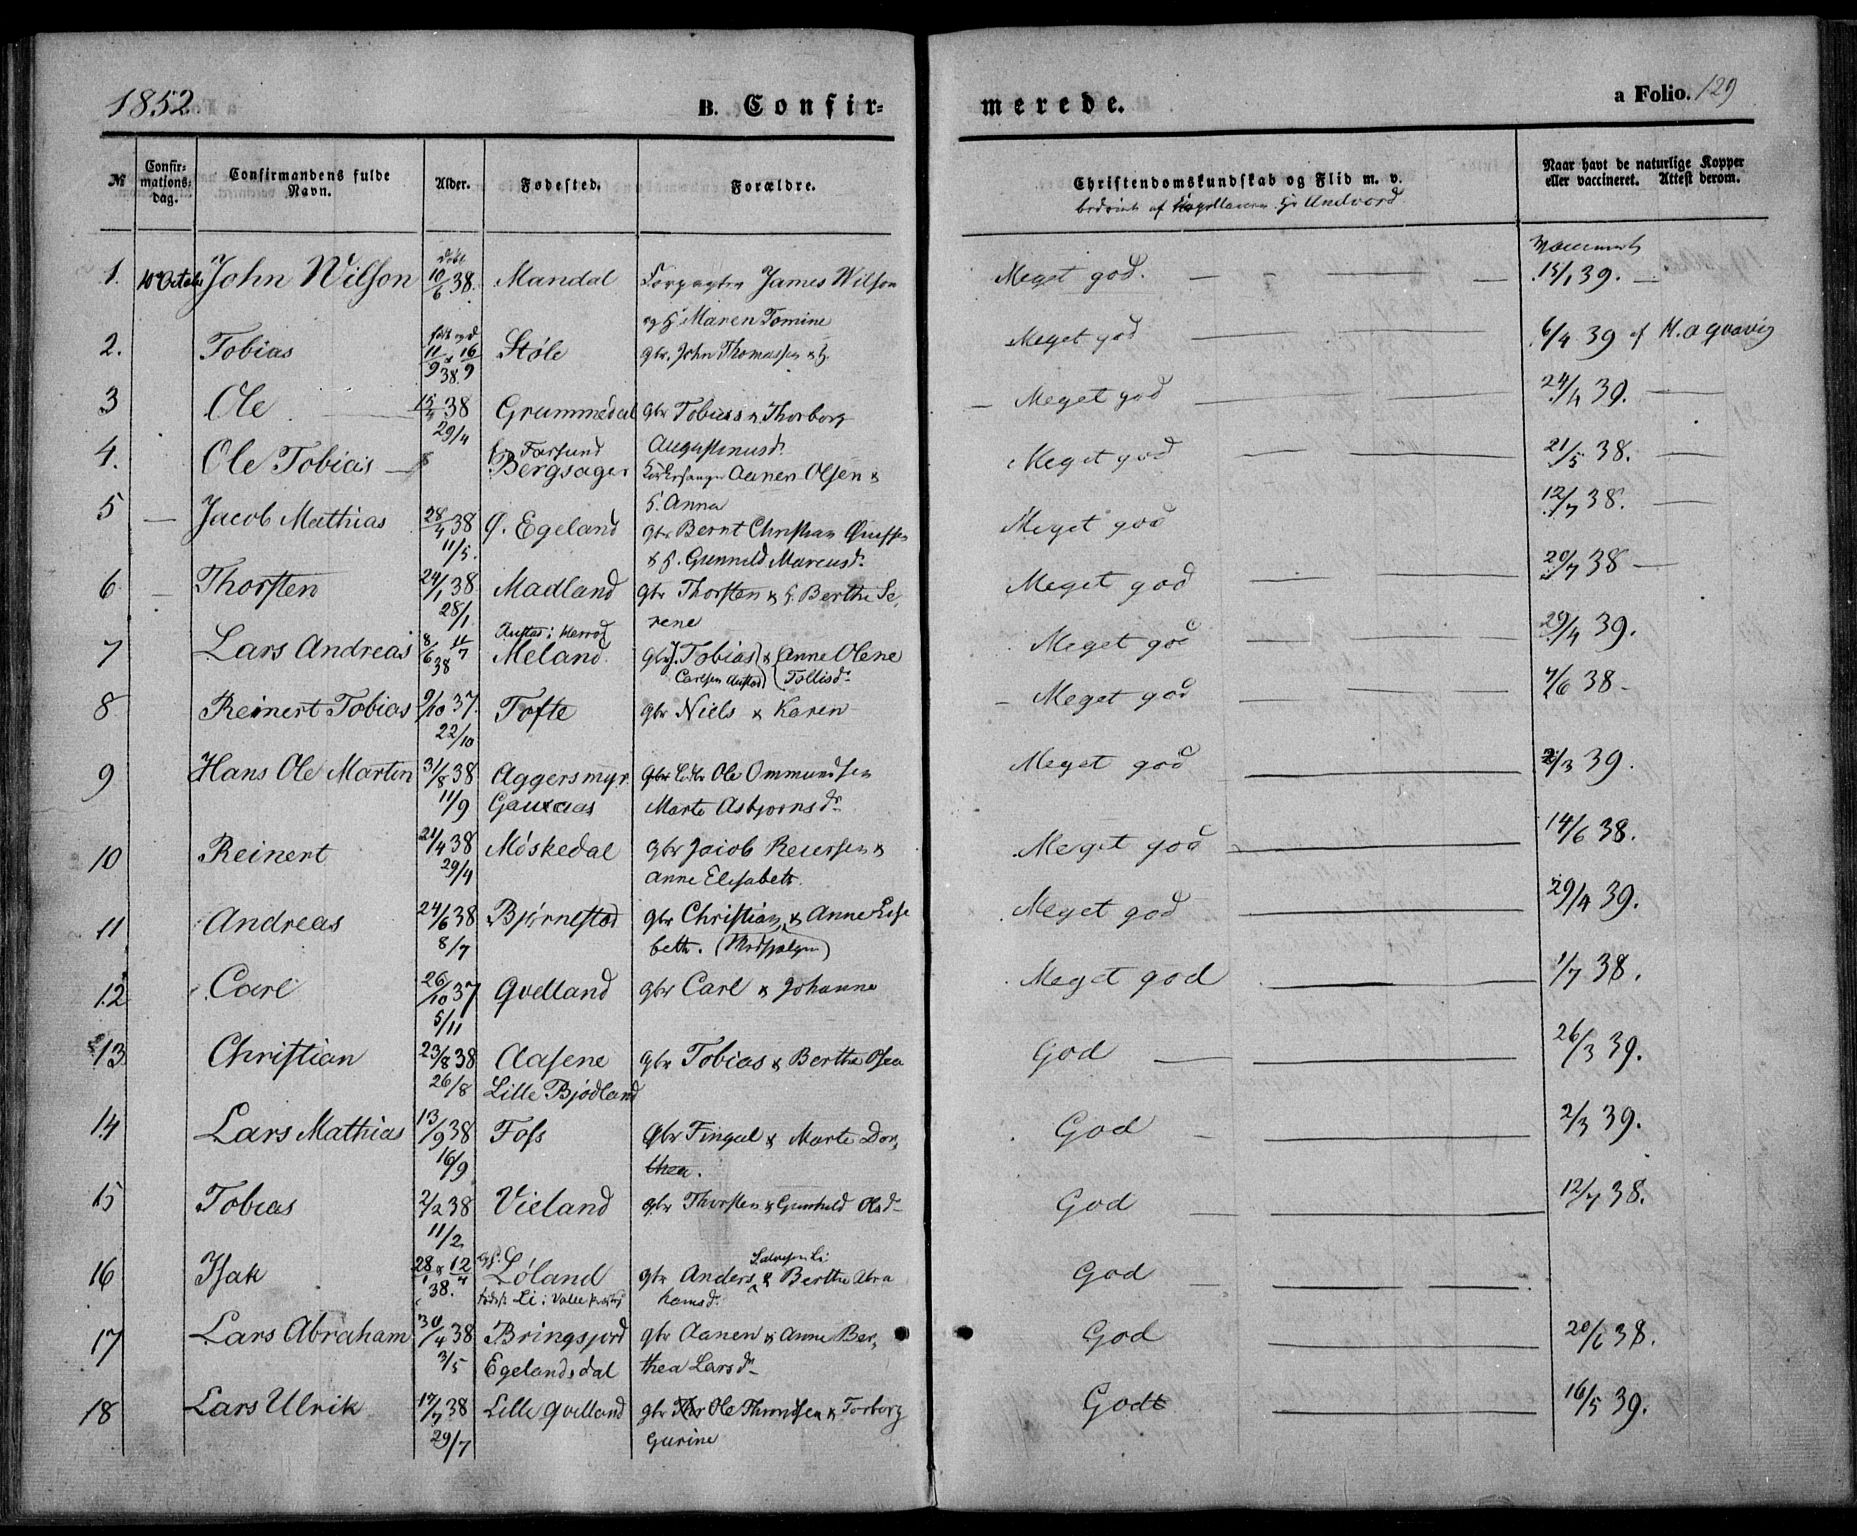 1852 B. Confir= merede. a Folio. 129
№ Confir=mations=dag. Confirmandens fulde Navn. Alder. Fødested. Forældre. Christendomskundskab og Flid m. v. Naar havt de naturlige Kopper eller vaccineret. Attest derom.
1. John Wilson 10/6 38. Mandal James Wilson Meget god. 15/1 39.
og H. Maren Tomine
2. Tobias 11/9 & 16/9 38. Støle gbr. John Thomassen & H. Meget god 6/4 39 af
3 Ole 15/4 38 Grummedal gbr Tobias & Thorborg Meget god 24/4 39.
29/4 Augustinusd.
4. Ole Tobias Farsund Bergsager Aanen Olsen & Meget god 21/5 38.
H. Anna
5 Jacob Mathias 28/4 38 Ø. Egeland gbr Bernt Christian Meget god 12/7 38.
11/5. & H. Gunnild Marcusd.
6 Thorsten 24/1 38 Madland gbr Thorsten & H. Berthe Se, Meget god 20/7 38
28/1 rene
7 Lars Andreas 8/6 38 Meland gbr. Tobias & Anne Olene Meget god 29/4 39.
Carlsen Austad Tollisd.
8 Reinert Tobias 9/10 37. Tofte gbr Niels & Karen Meget god 7/6 38
22/10
9 Hans Ole Martin 31/8 38 Aggersmyr Ole Ommundsen Meget god 2/3 39.
11/9 Marte Asbjornsd.
10 Reinert 21/4 38 Møskedal gbr Jacob Reiersen & Meget god 14/6 38.
29/4 Anne Elisabeth.
11 Andreas 24/6 38 Bjørnestad gbr Christian & Anne Lise Meget god 29/4 39.
8/7 beth.
12 Carl 26/10 37 Qvelland gbr Carl & Johanne Meget god 1/7 38.
5/11
13 Christian 23/8 38 Aasene gbr Tobias & Berthe Olea God 26/3 39.
26/8 Lille Bjødland
14 Lars Mathias 13/9 38 Foss Gbr Fingal & Marte Dor, God 2/3 39.
16/9 thea.
15 Tobias 2/2 38 Vieland gbr Thorsten & Gunhild Olsd. God 12/7 38.
11/2
16 Isak 28/1 & 12/4 38. Løland gbr Anders & Berthe Abra God
Li i Valle hamsd.
17 Lars Abraham 30/4 38 Bringsjord gbr Aanen & Anne Ber, God 20/6 38.
3/5 Egelandsdal thea Larsd.
18 Lars Ulrik 17/7 38 Lille Qvelland gbr Ole & Torborg Godt 16/5 39.
29/7 Gurine